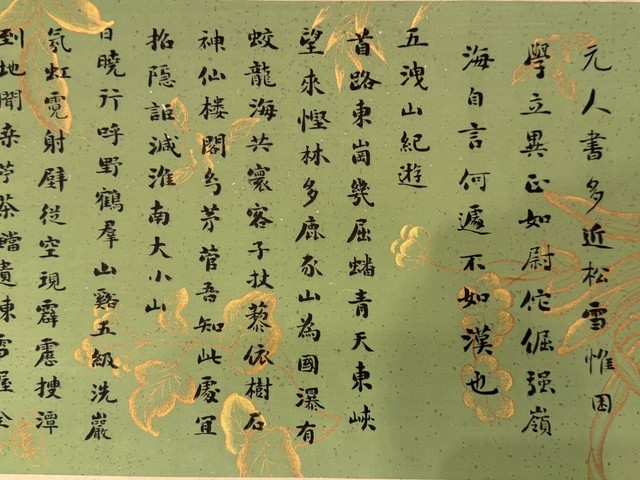 元人書多近松雪惟困
學立異正如尉佗倔强嶺
海自言何遽不如漢也
五洩山紀遊
首路東崗幾屈蟠青天東峽
望來慳林多鹿豕山為國瀑有
蛟龍海共寰客子扙藜依樹石
神仙楼閣与茅菅吾知此處冝
招隱詎減淮南大小山
日曉行呼野鶴羣山谿五級洗巖
氛虹霓射壁從空現霹靂搜潭
到地聞桒苧茶鐺